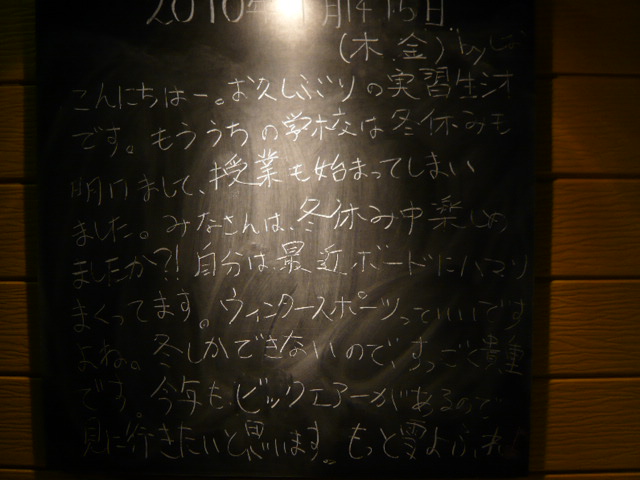 2010年1月14.15日
(木.金) by シオ
こんにちはー。お久しぶりの実習生シオ
です。もううちの学校は冬休みも
明けまして、授業も始まってしまい
ました。みなさんは、冬休み中楽しめ
ましたか?!自分は最近ボードにハマリ
まくってます。ウィンタースポーツっていいです
よね。冬しかできないので、すっごく貴重
です。今年もビックエアーがあるので
見に行きたいと思います。もっと雪よふれ